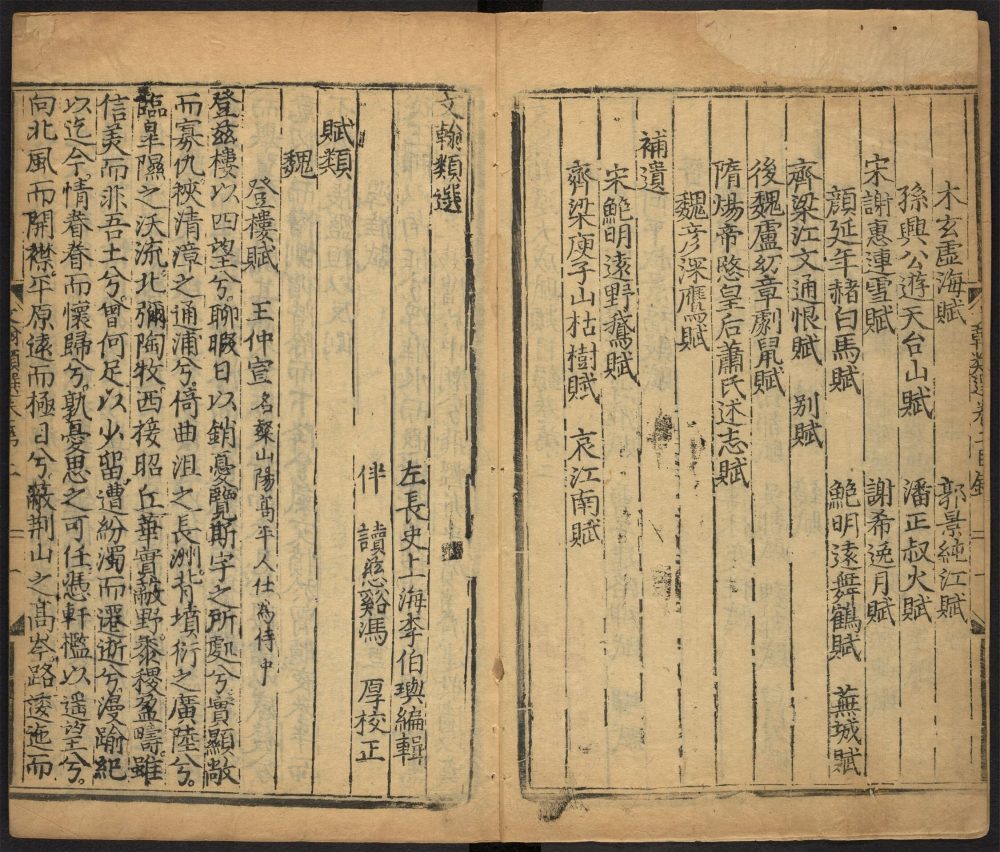 木玄虛海賦 郭景純江賦
孫興公遊天台山賦 潘正叔火賦
宋謝惠連雪賦 謝希逸月賦
顔延年赭白馬賦 鮑明遠舞鶴賦 蕪城賦
齊梁江文通恨賦 别賦
後魏盧㓜章劇鼠賦
隋煬帝愍皇后蕭氏述志賦
魏彦深鷹賦
補遺
宋鮑明遠野鵞賦
齊梁庾子山枯樹賦 哀江南賦
文翰類選
左長史上海李伯璵編輯
伴讀慈谿馮厚校正
賦類
魏
登樓賦 王仲宣 名粲山陽髙平人仕為侍中
登兹樓以四望兮聊暇日以銷憂覽斯宇之所處兮實顯敞
而寡仇挾清漳之通浦兮倚曲沮之長洲背墳衍之廣陸兮
臨皐隰之沃流北彌陶牧西接昭丘華實蔽野黍稷盈疇雖
信美而非吾土兮曾何足以少留遭紛濁而遷逝兮漫踰紀
以迄今情眷眷而懷歸兮孰憂思之可任憑軒檻以遥望兮
向北風而開襟平原遠而極目兮蔽荆山之髙岑路逶迤而